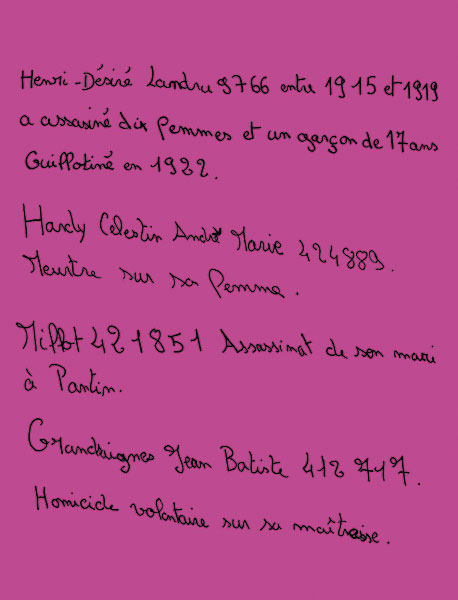 Henri-Désiré Landru 9766 entre 1915 et 1919
a assasiné dix femmes et un garçon de 17 ans
Guillotiné en 1922.
Hardy Celestin André Marie 424889.
Meurtre sur sa femme.
Milfot 421851 Assassinat de son mari
à Pantin.
Grandsignes Jean Batiste 412717.
Homicide volontaire sur sa maîtresse.